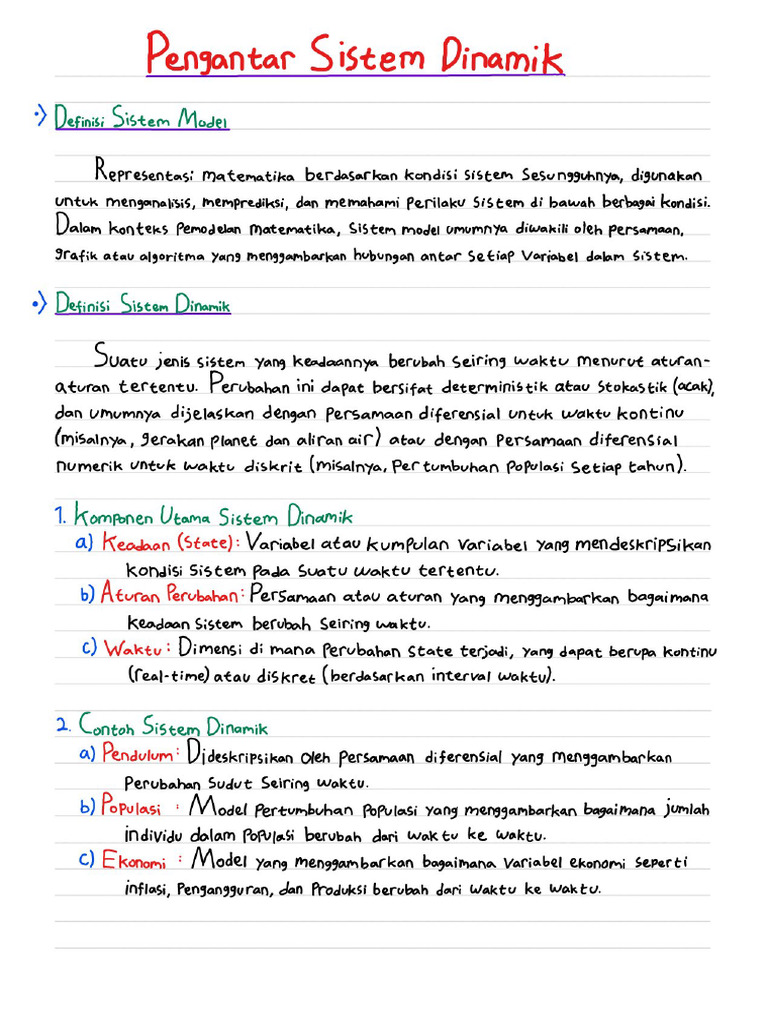 Pengantar Sistem Dinamik
•) Definisi Sistem Model
Representasi matematika berdasarkan kondisi sistem sesungguhnya, digunakan
untuk menganalisis, memprediksi, dan memahami perilaku sistem di bawah berbagai kondisi.
Dalam konteks pemodelan matematika, sistem model umumnya diwakili oleh persamaan,
grafik atau algoritma yang menggambarkan hubungan antar setiap variabel dalam sistem.
•) Definisi Sistem Dinamik
Suatu jenis sistem yang keadaannya berubah seiring waktu menurut aturan-
aturan tertentu. Perubahan ini dapat bersifat deterministik atau stokastik (acak),
dan umumnya dijelaskan dengan persamaan diferensial untuk waktu kontinu
(misalnya, gerakan planet dan aliran air) atau dengan persamaan diferensial
numerik untuk waktu diskrit (misalnya, pertumbuhan populasi setiap tahun).
1. Komponen Utama Sistem Dinamik
a) Keadaan (State): Variabel atau kumpulan variabel yang mendeskripsikan
kondisi sistem pada suatu waktu tertentu.
b) Aturan Perubahan: Persamaan atau aturan yang menggambarkan bagaimana
keadaan sistem berubah seiring waktu.
c) Waktu: Dimensi di mana perubahan state terjadi, yang dapat berupa kontinu
(real-time) atau diskret (berdasarkan interval waktu).
2. Contoh Sistem Dinamik
a) Pendulum: Dideskripsikan oleh persamaan diferensial yang menggambarkan
perubahan sudut seiring waktu.
b) Populasi : Model pertumbuhan populasi yang menggambarkan bagaimana jumlah
individu dalam populasi berubah dari waktu ke waktu.
c) Ekonomi : Model yang menggambarkan bagaimana variabel ekonomi seperti
inflasi, pengangguran, dan produksi berubah dari waktu ke waktu.